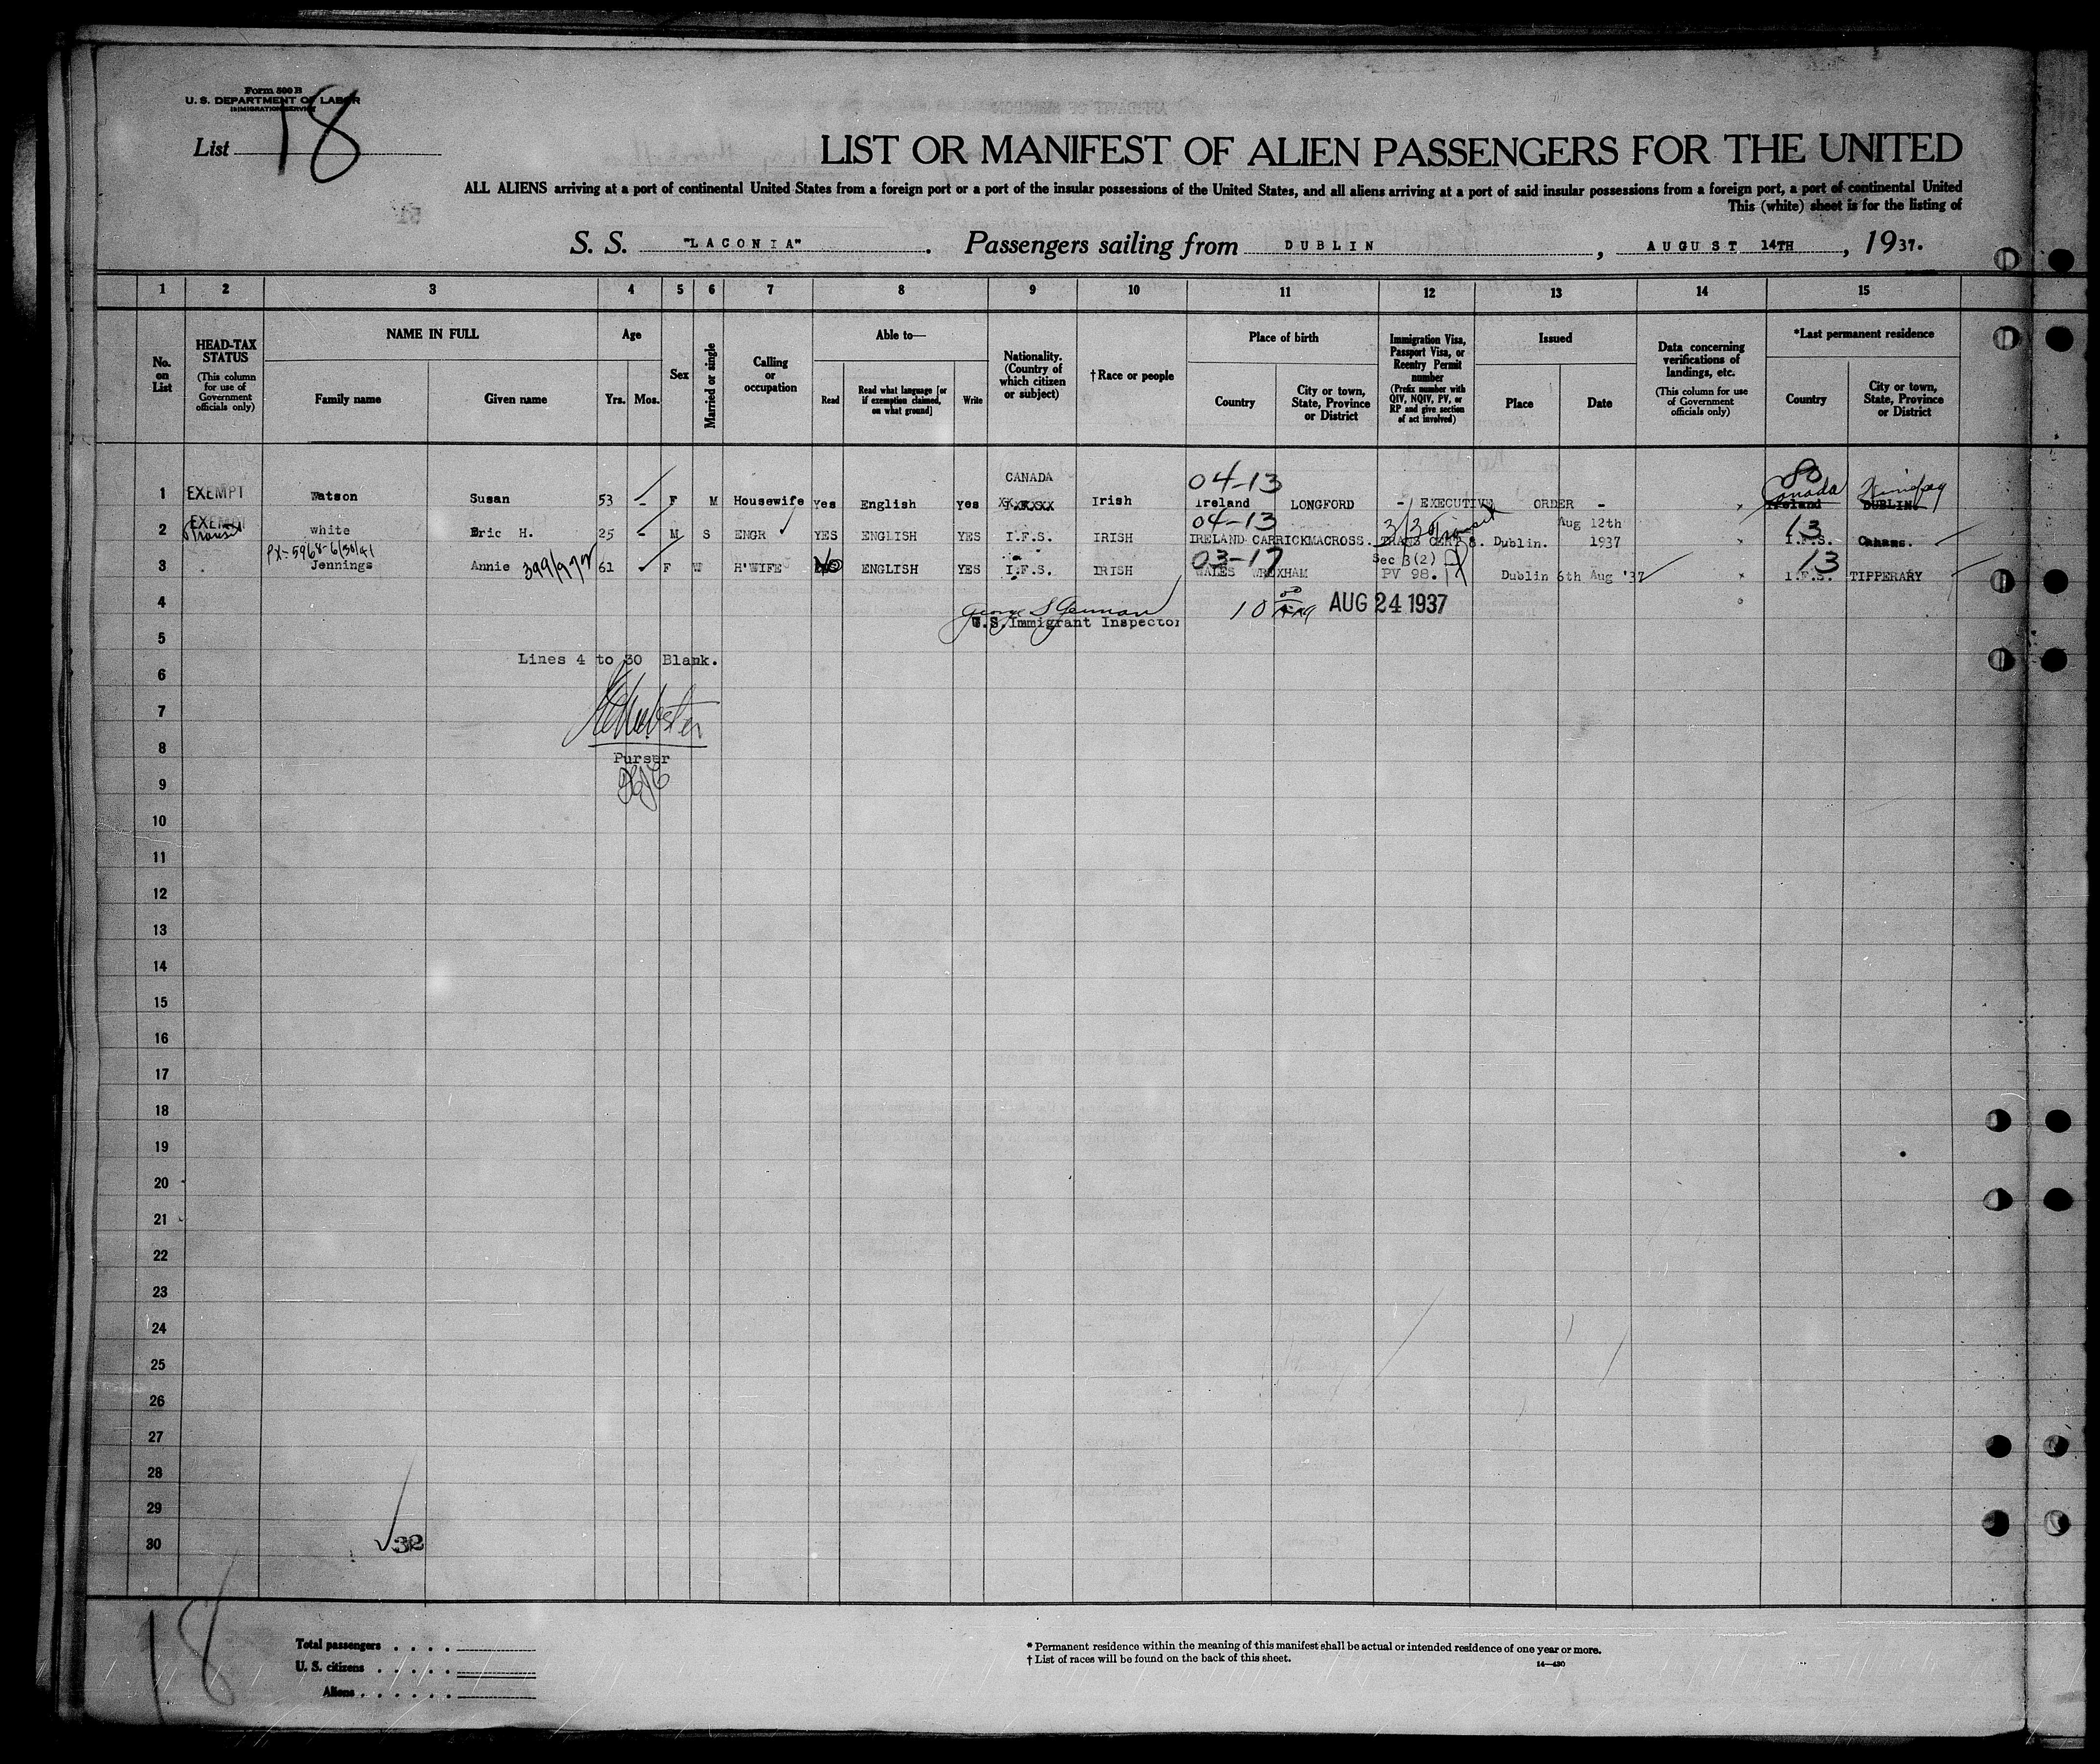 Form 500 B
U. S. DEPARTMENT OF LABOR
IMMIGRATION SERVICE
List 18
LIST OR MANIFEST OF ALIEN PASSENGERS FOR THE UNITED
ALL ALIENS arriving at a port of continental United States from a foreign port or a port of the insular possessions of the United States, and all aliens arriving at a port of said insular possessions from a foreign port, a port of continental United
This (white) sheet is for the listing of
S. S. "LACONIA". Passengers sailing from DUBLIN, AUGUST 14TH, 1937.
1 2 3 4 5 6 7 8 9 10 11 12 13 14 15
No. on List
HEAD-TAX STATUS
(This column for use of Government officials only)
NAME IN FULL
Family name Given name
Age
Yrs. Mos.
Sex
Married or single
Calling or occupation
Able to—
Read
Read what language [or if exemption claimed, on what ground]
Write
Nationality. (Country of which citizen or subject)
†Race or people
Place of birth
Country
City or town, State, Province or District
Immigration Visa, Passport Visa, or Reentry Permit number
(Prefix number with QIV, NQIV, PV, or RP and give section of act involved)
Issued
Place Date
Data concerning verifications of landings, etc.
(This column for use of Government officials only)
*Last permanent residence
Country
City or town, State, Province or District
CANADA 04-13 80
1 EXEMPT Watson Susan 53 - F M Housewife Yes English Yes Irish Ireland LONGFORD - EXECUTIVE ORDER - Canada Ireland DUBLIN
EXEMPT 04-13 Aug 12th 13
2 Transit white Eric H. 25 - M S ENGR YES ENGLISH YES I.F.S. IRISH IRELAND CARRICKMACROSS. Transit Dublin. 1937 I.F.S.
PX-5968-6/30/41 03-17 Sec 3(2) 13
3 Jennings Annie 399/972 61 F W H'WIFE No ENGLISH YES I.F.S. IRISH WALES WREXHAM PV 98. Dublin 6th Aug '37 I.F.S. TIPPERARY
4 10 AUG 24 1937
U.S. Immigrant Inspector
5
Lines 4 to 30 Blank.
6
7
8
Purser
9
10
11
12
13
14
15
16
17
18
19
20
21
22
23
24
25
26
27
28
29
30
32
18
Total passengers
U. S. citizens
Aliens
* Permanent residence within the meaning of this manifest shall be actual or intended residence of one year or more.
† List of races will be found on the back of this sheet.
14—430